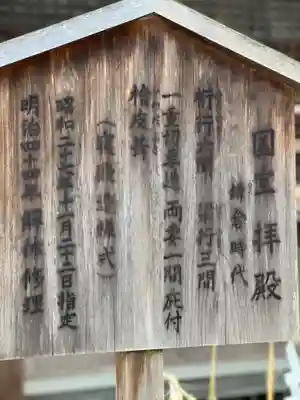 国宝 拝殿
鎌倉時代
桁行六間 梁行三間
一重切妻造 両妻一間庇付
檜皮葺
(寝殿造様式)
昭和二十七年十一月二十二日指定
明治四十四年 解体修理